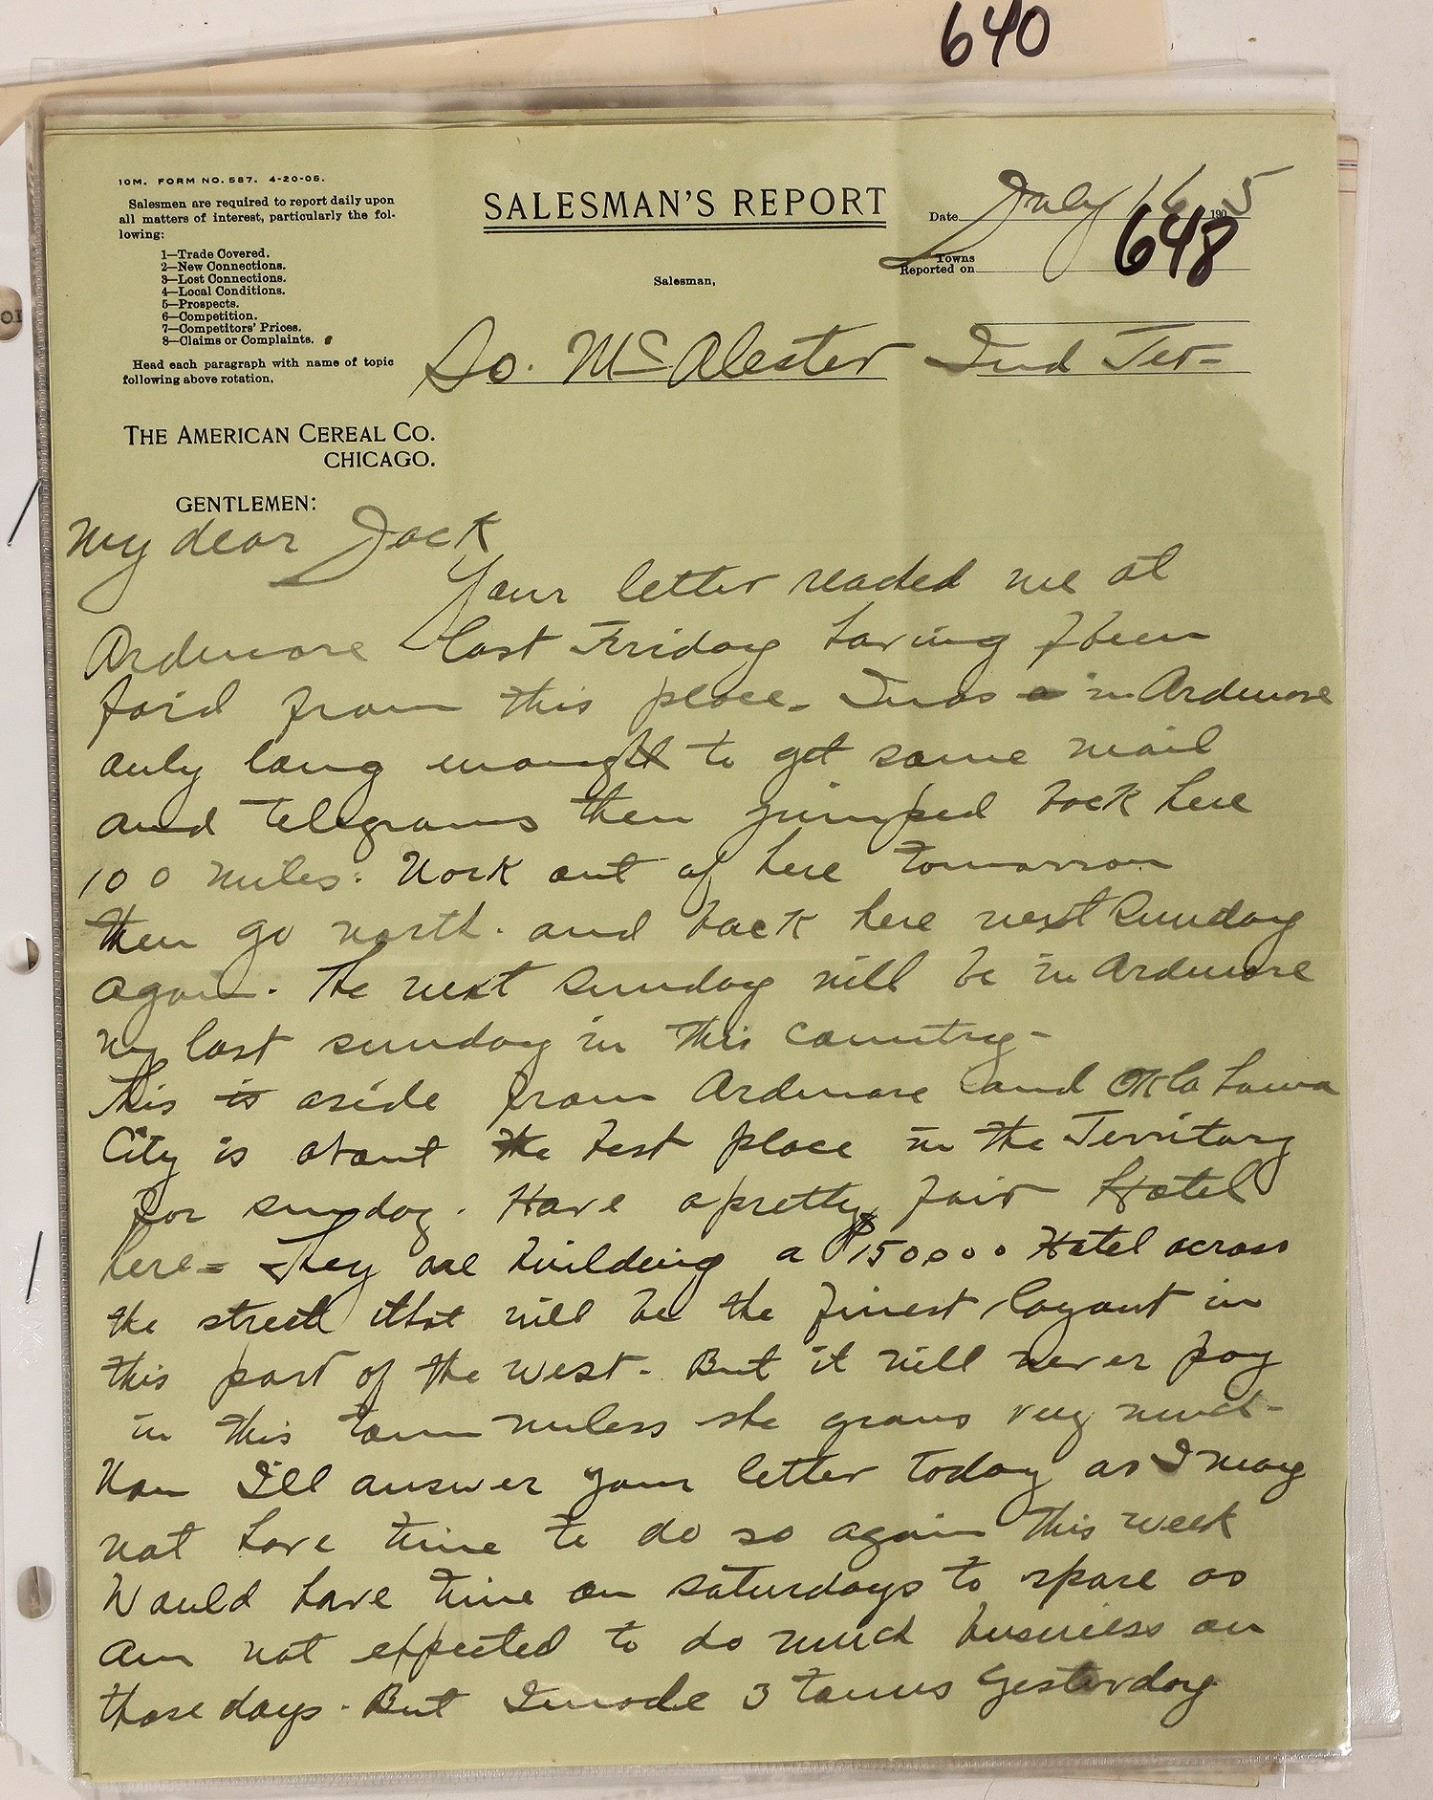 640
10M. FORM NO. 587. 4-20-05.
Salesmen are required to report daily upon
all matters of interest, particularly the fol-
lowing:
1—Trade Covered.
2—New Connections.
3—Lost Connections.
4—Local Conditions.
5—Prospects.
6—Competition.
7—Competitors' Prices.
8—Claims or Complaints.
Head each paragraph with name of topic
following above rotation.
SALESMAN'S REPORT
Salesman,
Date July 16 1905
648
Towns
Reported on
So. McAlester Ind Ter-
THE AMERICAN CEREAL CO.
CHICAGO.
GENTLEMEN:
My dear Jack
Your letter reached me at
Ardmore last Friday having been
for'd from this place. I was in Ardmore
only long enough to get some mail
and telegrams then jumped back here
100 miles. Work out of here tomorrow
then go north. and back here next Sunday
again. The next Sunday will be in Ardmore
my last sunday in this country-
This is aside from Ardmore and Oklahoma
City is about the best place in the Territory
for sunday. Have a pretty fair Hotel
here- They are building a $150000 Hotel across
the street that will be the finest layout in
this part of the west. But it will never pay
in this town unless she grows very much-
Now I'll answer your letter today as I may
not have time to do so again this week
Would have time on saturdays to spare as
am not expected to do much business on
those days. But I made 3 towns yesterday